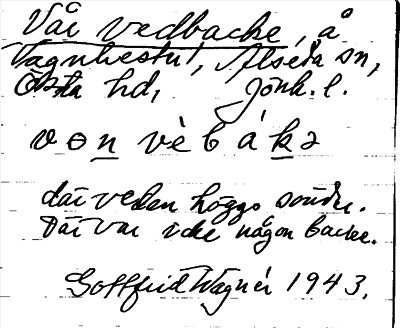 Vår vedbacke, å
Vagnhester, Alseda sn,
Östra hd, Jönk. l.
vɵn vèbákə
där veden höggs sönder.
Där var icke någon backe.
Gottfrid Wagnér 1943.